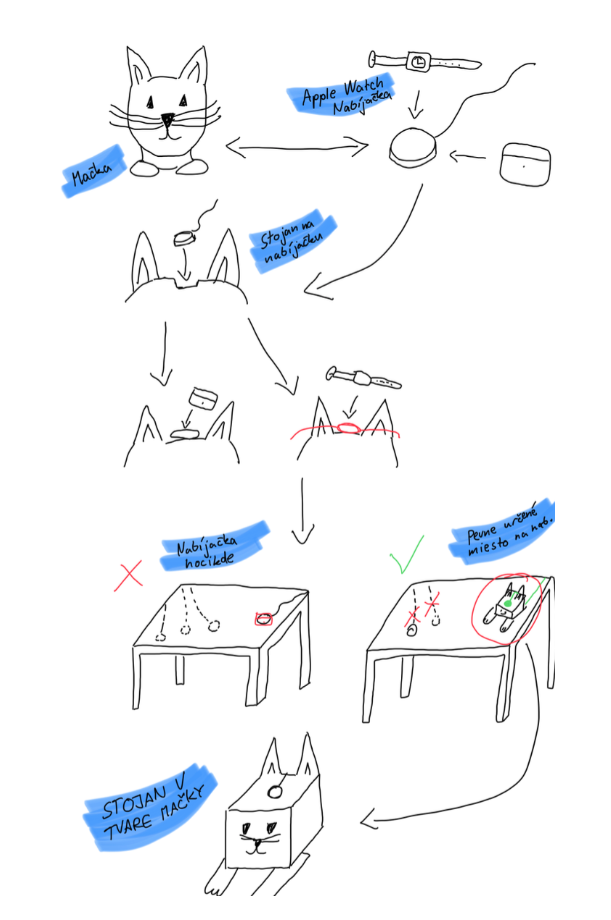 Apple Watch
Nabíjačka
Mačka
Stojan na
nabíjačku
Nabíjačka
hocikde
Pevne určené
miesto na nab.
STOJAN V
TVARE MAČKY